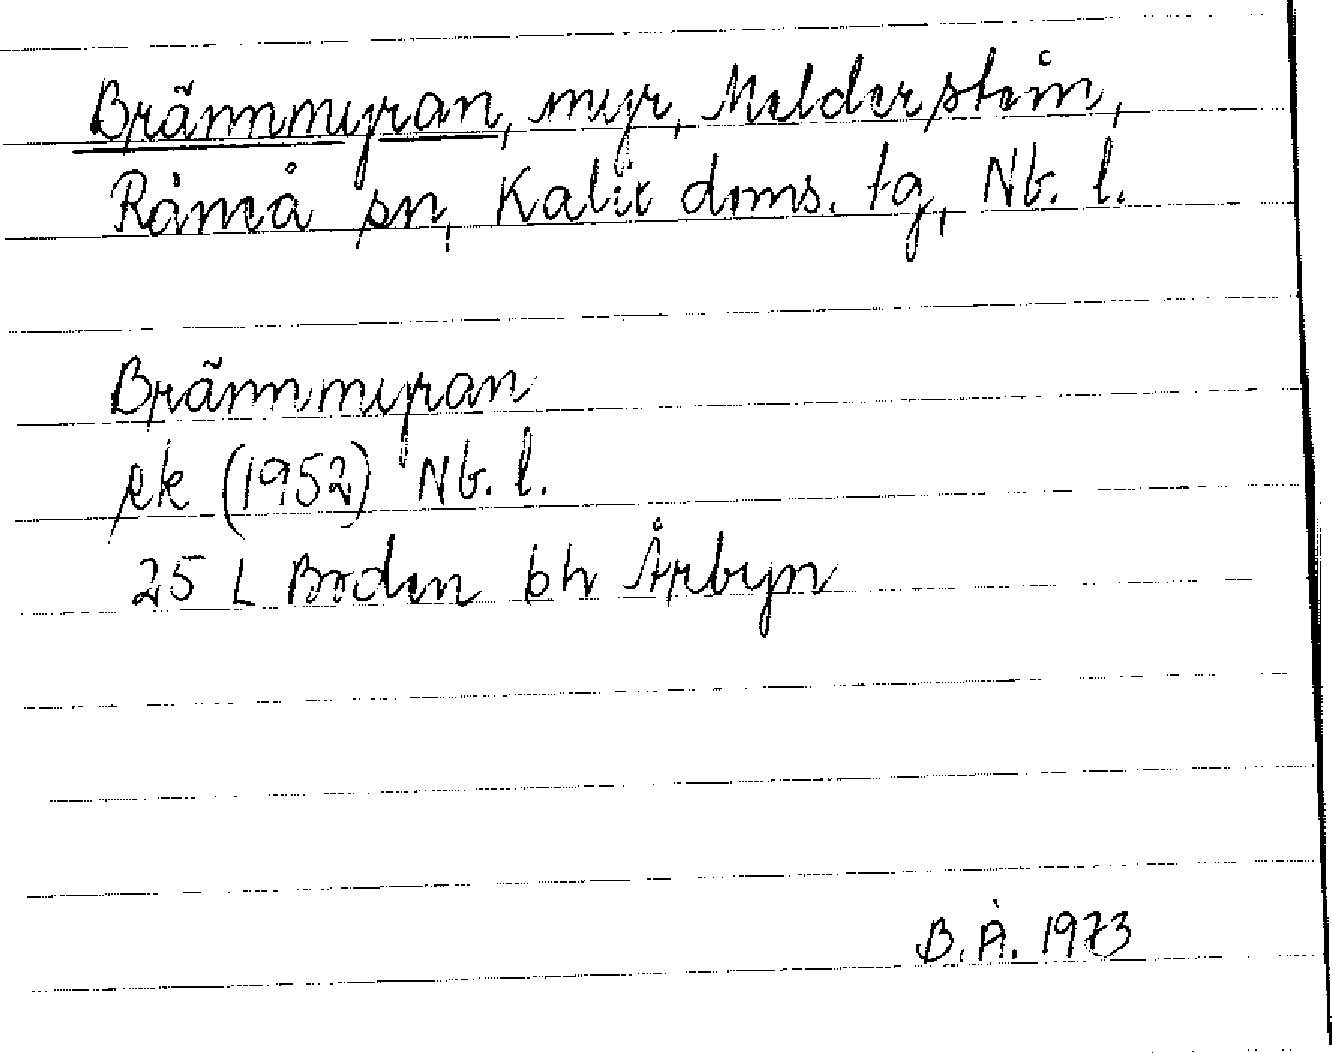 Brännmyran, myr, Melderstein,
Råneå sn, Kalix doms. tg, Nb. l.
Brännmyran
ek (1952) Nb. l.
25 L Boden bh Årbyn
B. Å. 1973